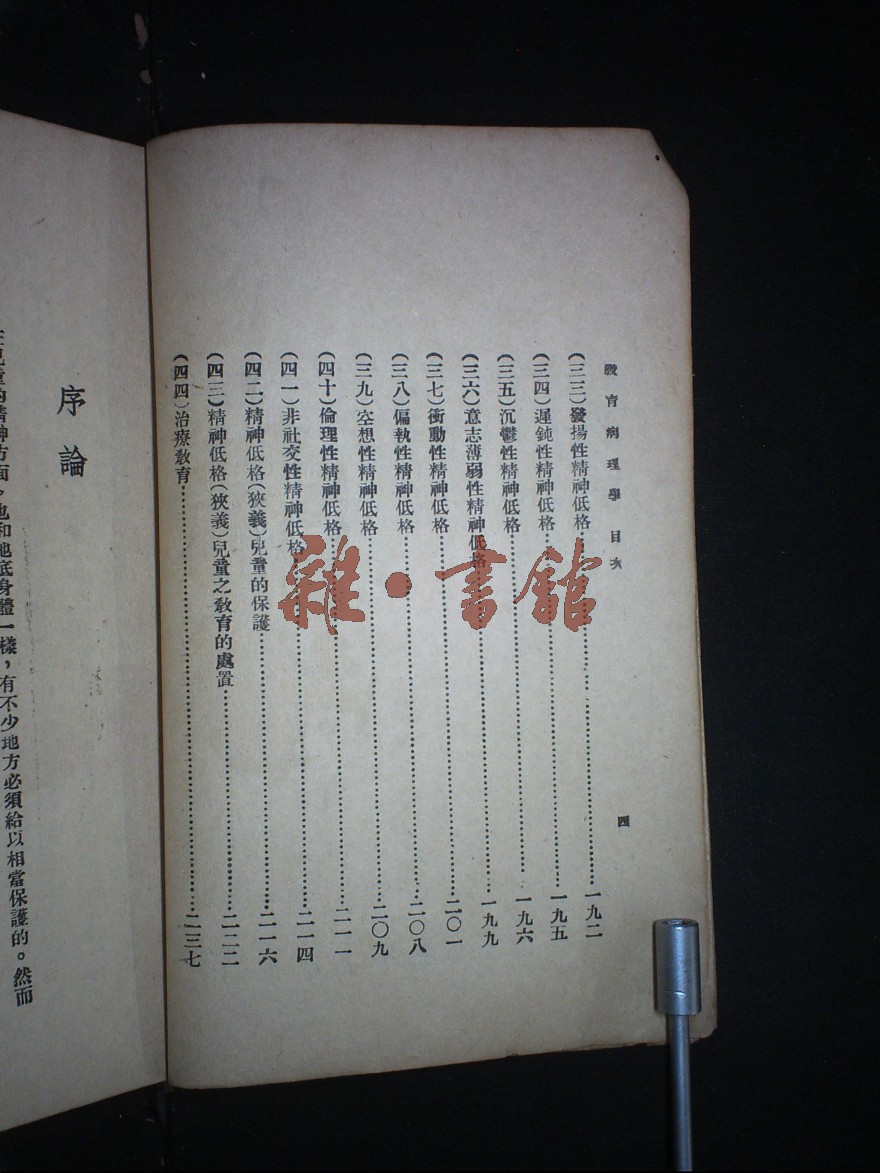 教育病理學 目次
四
(三三)發揚性精神低格……一九二
(三四)遲鈍性精神低格……一九五
(三五)沉鬱性精神低格……一九六
(三六)意志薄弱性精神低格……一九九
(三七)衝動性精神低格……二〇一
(三八)偏執性精神低格……二〇八
(三九)空想性精神低格……二〇九
(四十)倫理性精神低格……二一一
(四一)非社交性精神低格……二一四
(四二)精神低格(狹義)兒童的保護……二一六
(四三)精神低格(狹義)兒童之教育的處置……二二二
(四四)治療教育……二三七
序論
兒童的精神方面,也和他底身體一樣,有不少地方必須給以相當保護的。然而
雜·書館